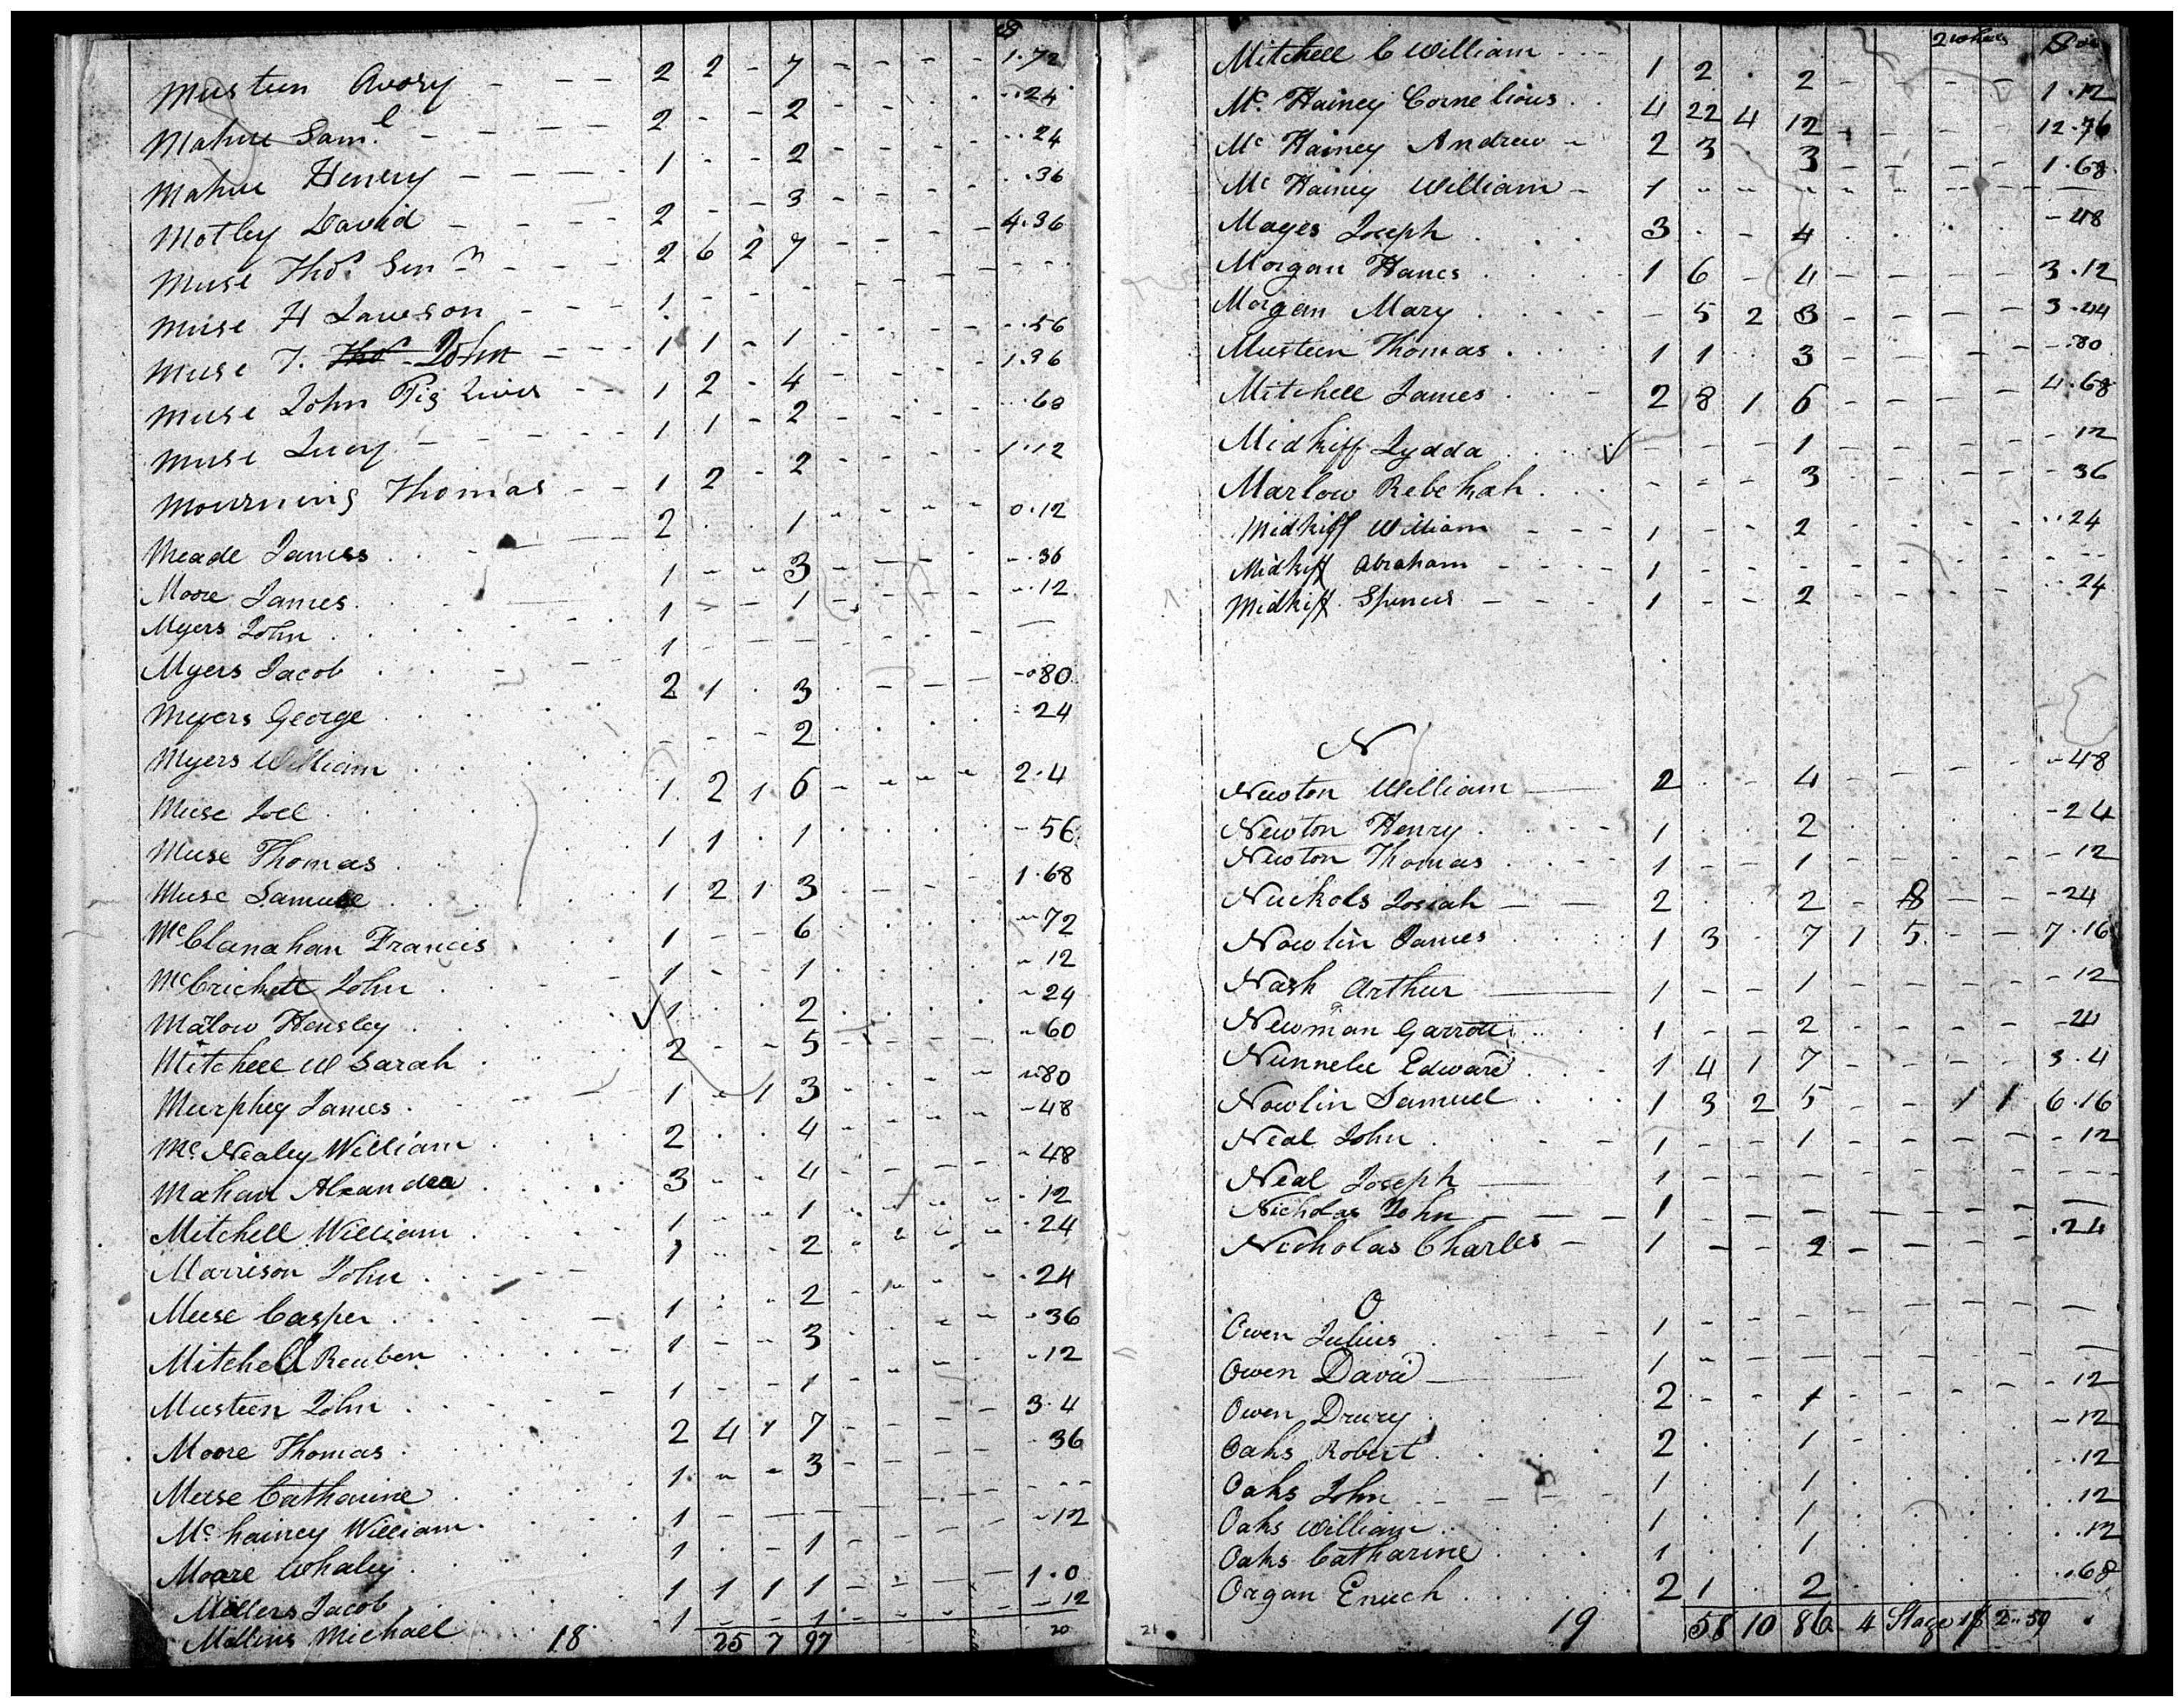 $
Musteen Avory - - - 2 2 - 7 - - - - 1.72
Mahue Saml. - - - - 2 - - 2 - - - - .24
Mahue Henery - - - - 1 - - 2 - - - - .24
Motley David - - - 2 - - 3 - - - - .36
Muse Thos. Senr - - - 2 6 2 7 - - - - 4.36
Muse H Laueson - - - 1 - - - - - - -
Muse T. Thos John - - - 1 1 - 1 - - - - .56
Muse John Pig River - - 1 2 - 4 - - - - 1.36
Muse Lucy - - - - 1 1 - 2 - - - - .68
Mourning Thomas - - 1 2 - 2 - - - - 1.12
Meade James . . - 2 . . 1 - - - - 0.12
Moore James . . . 1 - - 3 - - - - .36
Myers John . . . . 1 - - 1 - - - - .12
Myers Jacob . . - - 1 - - - - - - -
Myers George . . . . 2 1 . 3 . - - - .80
Myers William . . . . - - - 2 . . . . .24
Muse Joel . . . . 1 2 1 6 - - - - 2.4
Muse Thomas . . . . 1 1 . 1 . . . . .56
Muse Samuel . . . . 1 2 1 3 - - - - 1.68
McClanahan Francis . . . 1 - - 6 . . . . .72
McCrickett John . . - 1 - - 1 . . . . .12
Marlow Hensley . . . . ✓ 1 . . 2 . . . . .24
Mitchell W Sarah . . . 2 - - 5 - - - - .60
Murphey James . . . - 1 - 1 3 - - - - .80
Mc. Nealey William . . . 2 . . 4 - - - - .48
Mahan Alexander . . . . 3 - - 4 - - - - .48
Mitchell William . . . 1 - - 1 - - - - .12
Marrison John . - - - 1 - - 2 - - - - .24
Muse Casper . . . - 1 - - 2 - - - - .24
Mitchell Reuben . . . . 1 - - 3 - - - - .36
Musteen John . . . - 1 - - 1 - - - - .12
Moore Thomas . . . . 2 4 1 7 - - - - 3.4
Muse Catharine . . . . 1 - - 3 - - - - .36
Mc. hainey William . . . 1 - - - - - - - -
Moore Whaley . . . . 1 . - 1 - - - - .12
Millers Jacob . . . . 1 1 1 1 - - - - 1.0
Mullins Michael . . . . 1 - - 1 - - - - .12
18 25 7 97 20
$
Mitchell C William - - - 1 2 . 2 - - - - 1.12
Mc. Hainey Cornelious . . 4 22 4 12 - - - - 12.76
Mc Hainey Andrew - 2 3 . 3 - - - - 1.68
Mc Hainey William - 1 - - - - - - - -
Mayes Joseph . . . 3 . - 4 . . . . .48
Morgan Hanes . . . . 1 6 - 4 - - - - 3.12
Morgan Mary . . . . - 5 2 3 - - - - 3.44
Musteen Thomas . . . . 1 1 . 3 - - - - .80
Mitchell James . . . - 2 8 1 6 - - - - 4.68
Midkiff Lydda . . . . ✓ - - - 1 - - - - .12
Marlow Rebekah . . . - - - 3 - - - - .36
Midkiff William - - - 1 - - 2 - - - - .24
Midkiff Abraham - - - - 1 - - - - - - - -
Midkiff Spencer - - - - 1 - - 2 - - - - .24
N
Newton William — 2 . - 4 - - - - .48
Newton Henry . . . - 1 . . 2 . . . . .24
Newton Thomas . . . . 1 - - 1 - - - - .12
Nuckols Josiah — — 2 . . 2 - 8 - - .24
Nowlin James . . . . 1 3 . 7 1 5 - - 7.16
Nash Arthur — 1 - - 1 - - - - .12
Newman Garrott . . . 1 - - 2 - - - - .24
Nunnelee Edward . . . 1 4 1 7 - - - - 3.4
Nowlin Samuel . . . 1 3 2 5 - - 1 1 6.16
Neal John . . - - 1 - - 1 - - - - .12
Neal Joseph — 1 - - - - - - - -
Nicholas John — — 1 - - - - - - - -
Nicholas Charles - 1 - - 2 - - - - .24
O
Owen Julius . - - - 1 - - - - - - - -
Owen David — 1 - - - - - - - -
Owen Drury . . . . 2 - - 1 - - - - .12
Oaks Robert . . . . 2 . . 1 - . . . .12
Oaks John - - - - 1 . . 1 . . . . .12
Oaks William . . . . 1 . . 1 . . . . .12
Oaks Catharine . . . . 1 . . 1 . . . . .12
Organ Enuch . . . . 2 1 . 2 . . . . .68
21 19 58 10 86 4 Stage